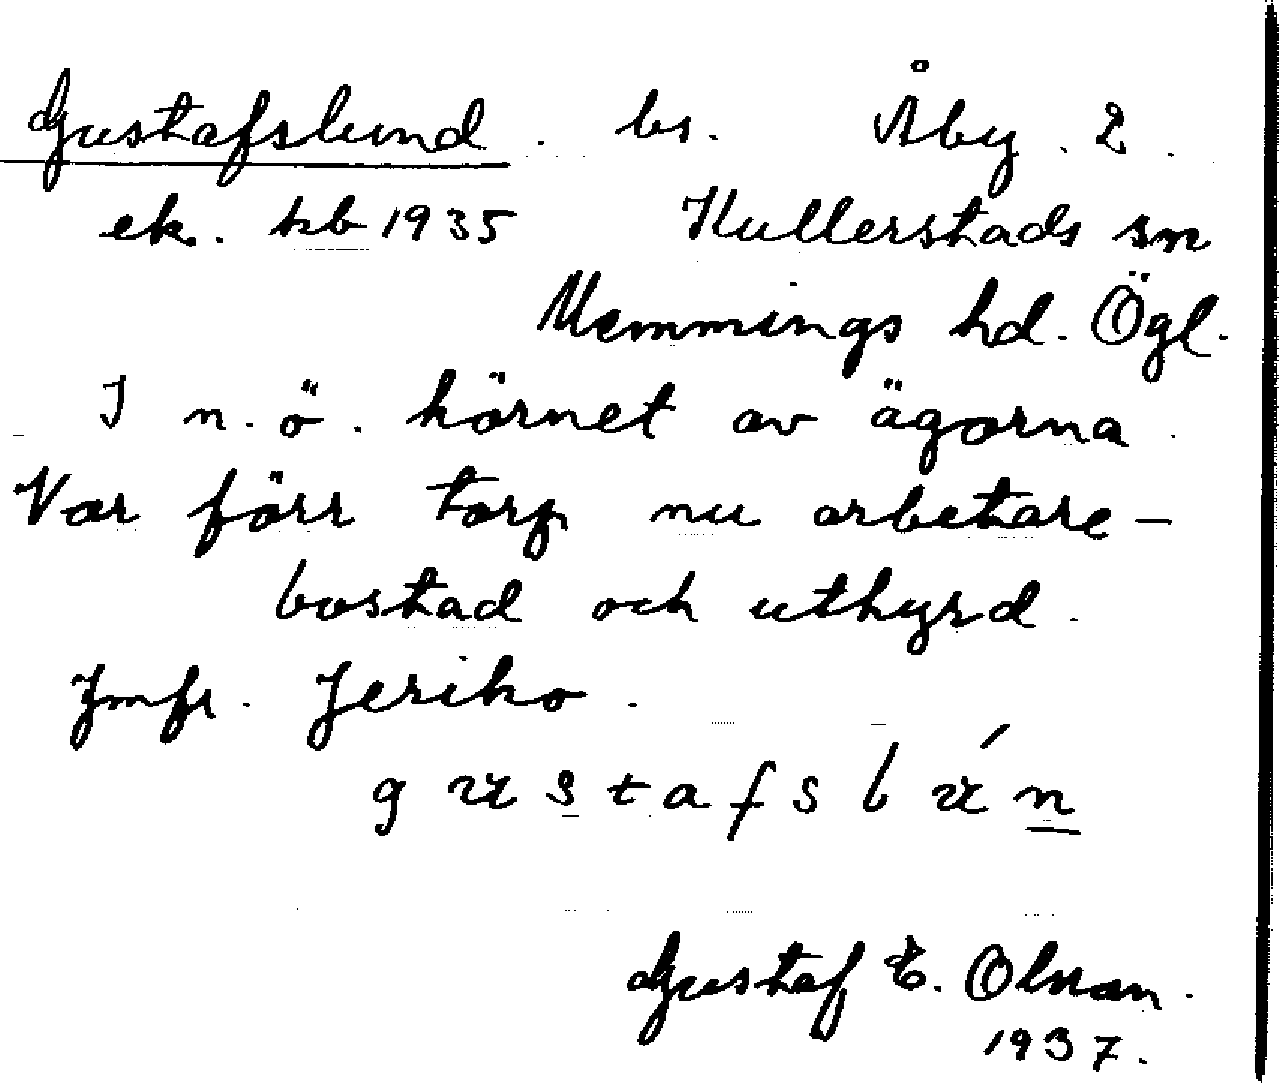 Gustafslund. bs. Åby. 2.
ek. hb 1935 Kullerstads sn
Memmings hd. Ögl.
I n.ö. hörnet av ägorna.
Var förr torp nu arbetare-
bostad och uthyrd.
Jmfr. Jeriko.
gustafslún
Gustaf E. Olsson.
1937.